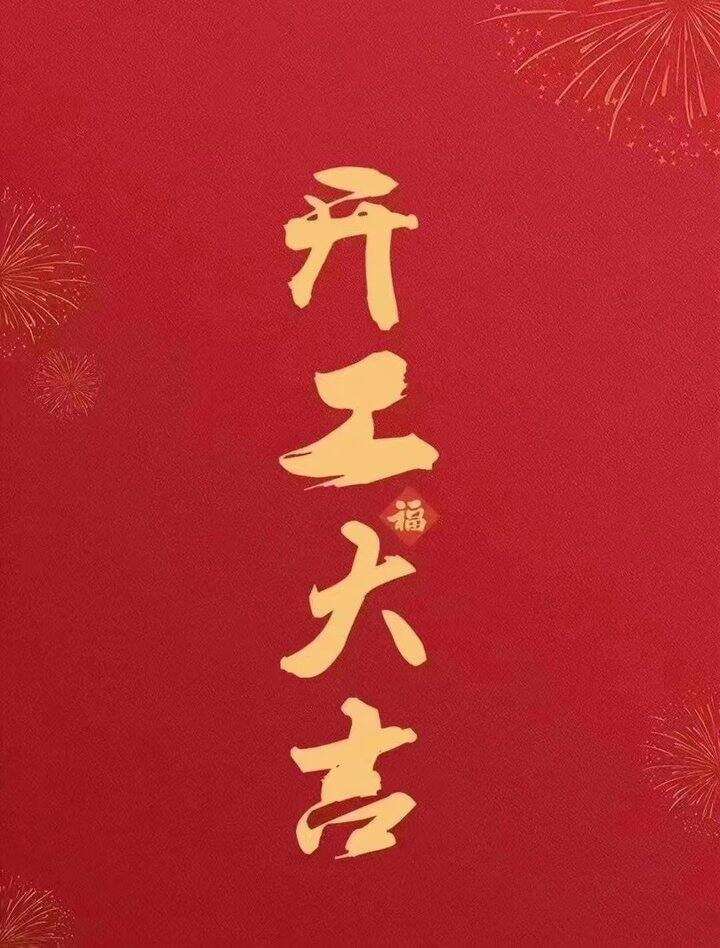 开工大吉
福